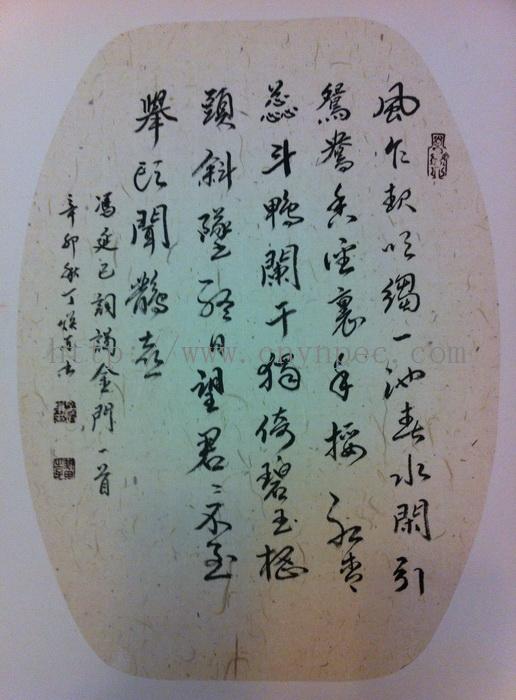 風乍起吹縐一池春水閑引
鴛鴦香徑裏手挼紅杏
蕊斗鴨闌干獨倚碧玉搔
頭斜墜終日望君〻不至
舉頭聞鵲喜
馮延巳詞謁金門一首
辛卯秋丁